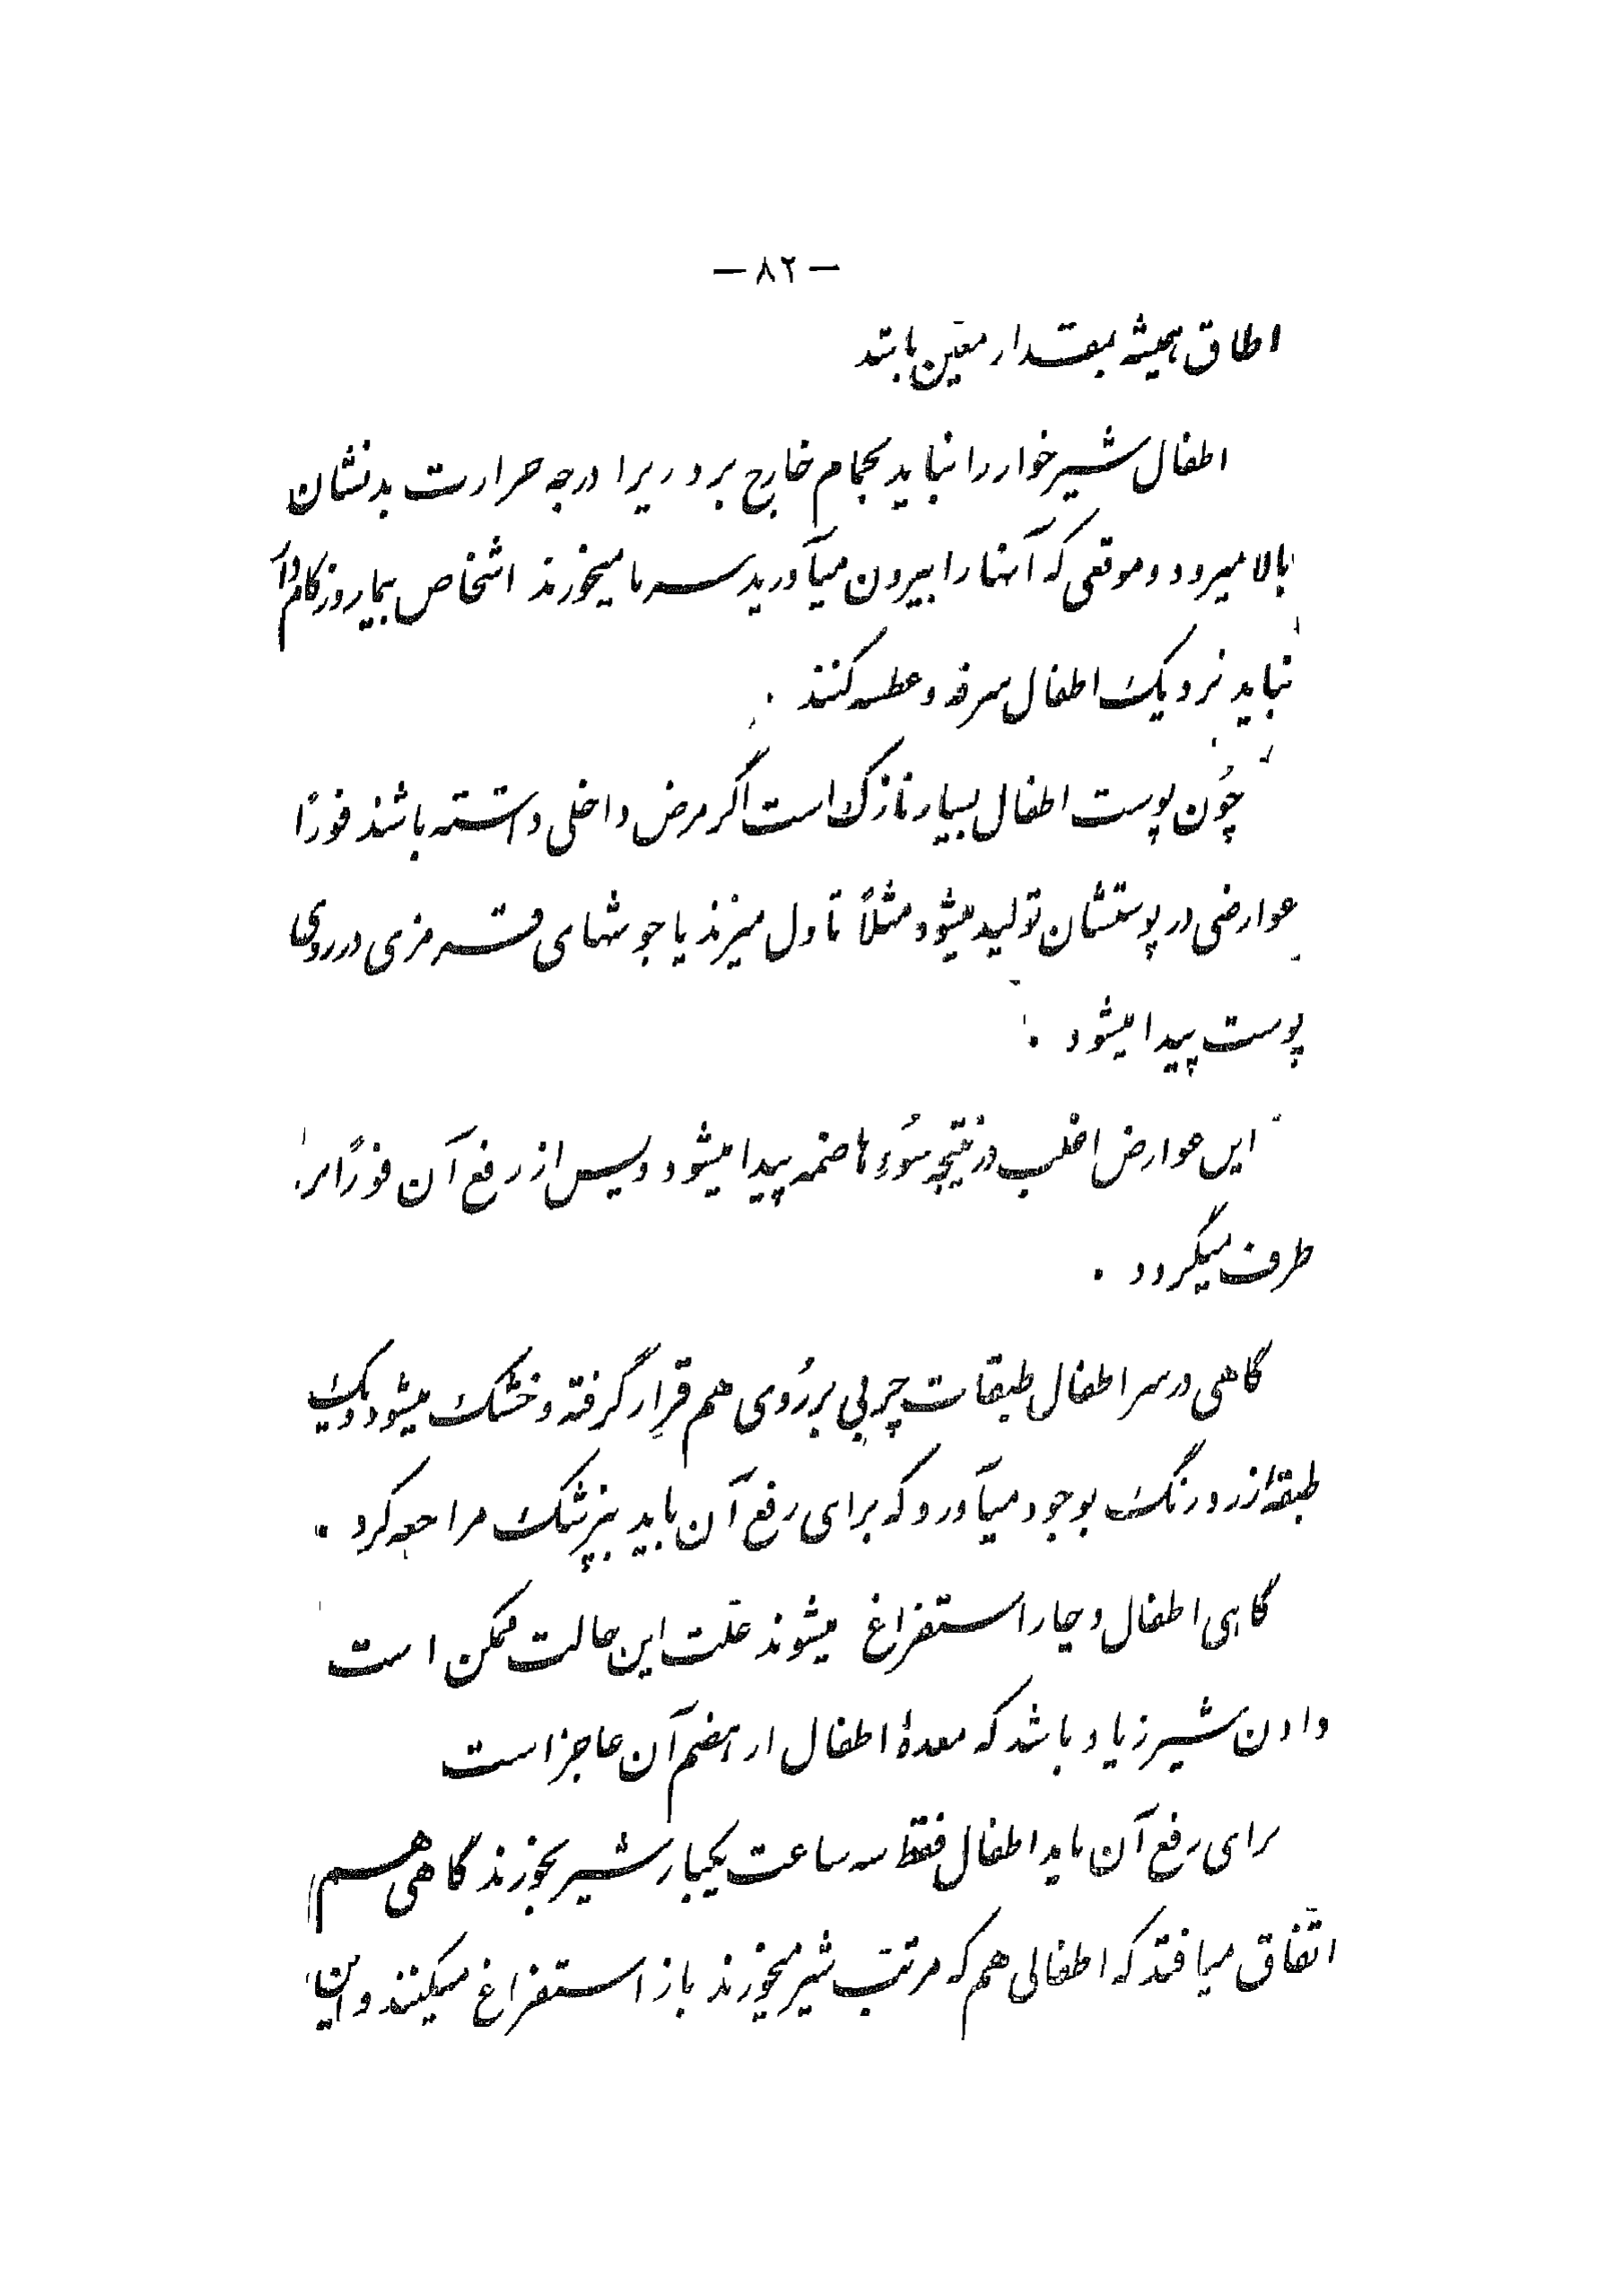 — ۸۲ —
اطاق همیشه بمقدار معین باشد
اطفال شیرخوار را نباید بحمام خارج برد زیرا درجه حرارت بدنشان
بالا میرود و موقعی که آنها را بیرون میآورید سرما میخورند اشخاص بیمار و زکام دار
نباید نزدیک اطفال سرفه و عطسه کنند .
چُون پوست اطفال بسیار نازک است اگر مرض داخلی داشته باشند فوراً
عوارضی در پوستشان تولید میشود مثلاً تاول میزند یا جوشهای قرمزی در روی
پوست پیدا میشود .
این عوارض اغلب در نتیجه سُوء هاضمه پیدا میشود و پس از رفع آن فوراً بر
طرف میگردد .
گاهی در سر اطفال طبقات چربی بر رُوی هم قرار گرفته و خشک میشود و یک
طبقهٔ زرد رنگ بوجود میآورد که برای رفع آن باید بپزشک مراجعه کرد .
گاهی اطفال دچار استفراغ میشوند علّت این حالت ممکن است
دادن شیر زیاد باشد که معدهٔ اطفال از هضم آن عاجز است
برای رفع آن باید اطفال فقط سه ساعت یکبار شیر بخورند گاهی هم
اتّفاق میافتد که اطفالی هم که مرتب شیر میخورند باز استفراغ میکنند و این